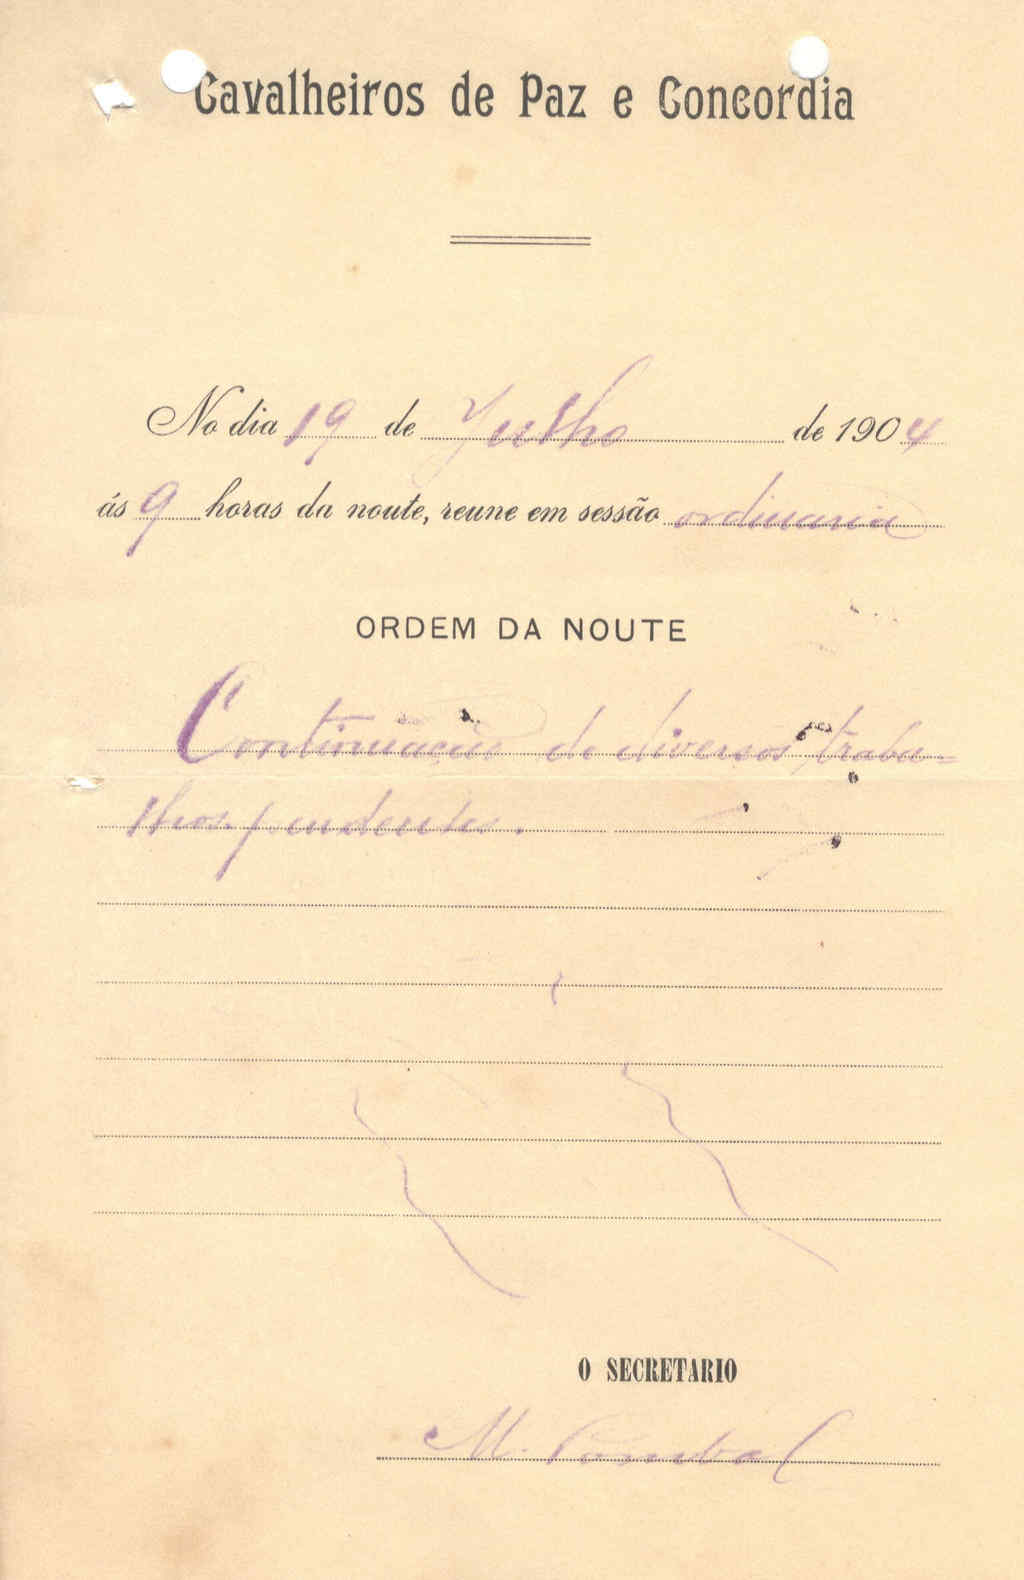 Cavalheiros de Paz e Concordia
No dia 19 de Julho de 1904
ás 9 horas da noute, reune em sessão ordinaria
ORDEM DA NOUTE
Continuação de diversos traba-
lhos pendentes.
O SECRETARIO
M. Pombal